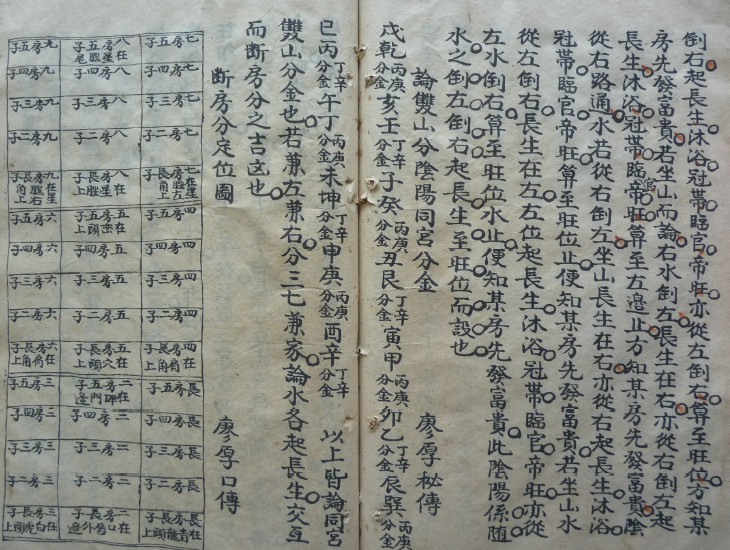 倒右起長生沐浴冠帶臨官帝旺亦從左倒右算至旺位方知某
房先發富貴若坐山而論右水倒左長生在右亦從右倒左起
長生沐浴冠帶臨官帝旺算至左邊止方知某房先發富貴陰
從右路通水若從右倒左坐山長生在右亦從右起長生沐浴
冠帶臨官帝旺算至旺位止便知某房先發富貴若坐山水
從左倒右長生在左左位起長生沐浴冠帶臨官帝旺亦從
左水倒右算至旺位水止便知某房先發富貴此陰陽係随
水之倒左倒右起長生至旺位而設也
論雙山分陰陽同宮分金 廖厚秘傳
戌乾丙庚分金亥壬丁辛分金子癸丙庚分金丑艮丁辛分金寅甲丙庚分金卯乙丁辛分金辰巽丙庚分金
巳丙丁辛分金午丁丙庚分金未坤丁辛分金申庚丙庚分金酉辛丁辛分金 以上皆論同宮
雙山分金也若兼左兼右分三七兼家論水各起長生交互
而断房分之吉凶也
断房分定位圖 廖厚口傳
七房五子 八房五子在星腿尾 九房五子
七房四子 八房四子 九房四子
七房三子 八房三子 九房三子
七房二子 八房二子 九房二子
七房長子在星腿左角上 八房長子在星腿上 九房長子在星腿右角上
四房五子 五房五子在頭上 六房五子
四房四子 五房四子 六房四子
四房三子 五房三子 六房三子
四房二子 五房二子 六房二子
四房長子在肩角上 五房長子在穴頭上 六房長子在肩角上
長房五子 二房五子在碑門邊 三房五子
長房四子 二房四子 三房四子
長房三子 二房三子 三房三子
長房二子 二房二子 三房二子
長房長子在青龍頭上 二房長子在口唇外邊 三房長子在白虎頭上